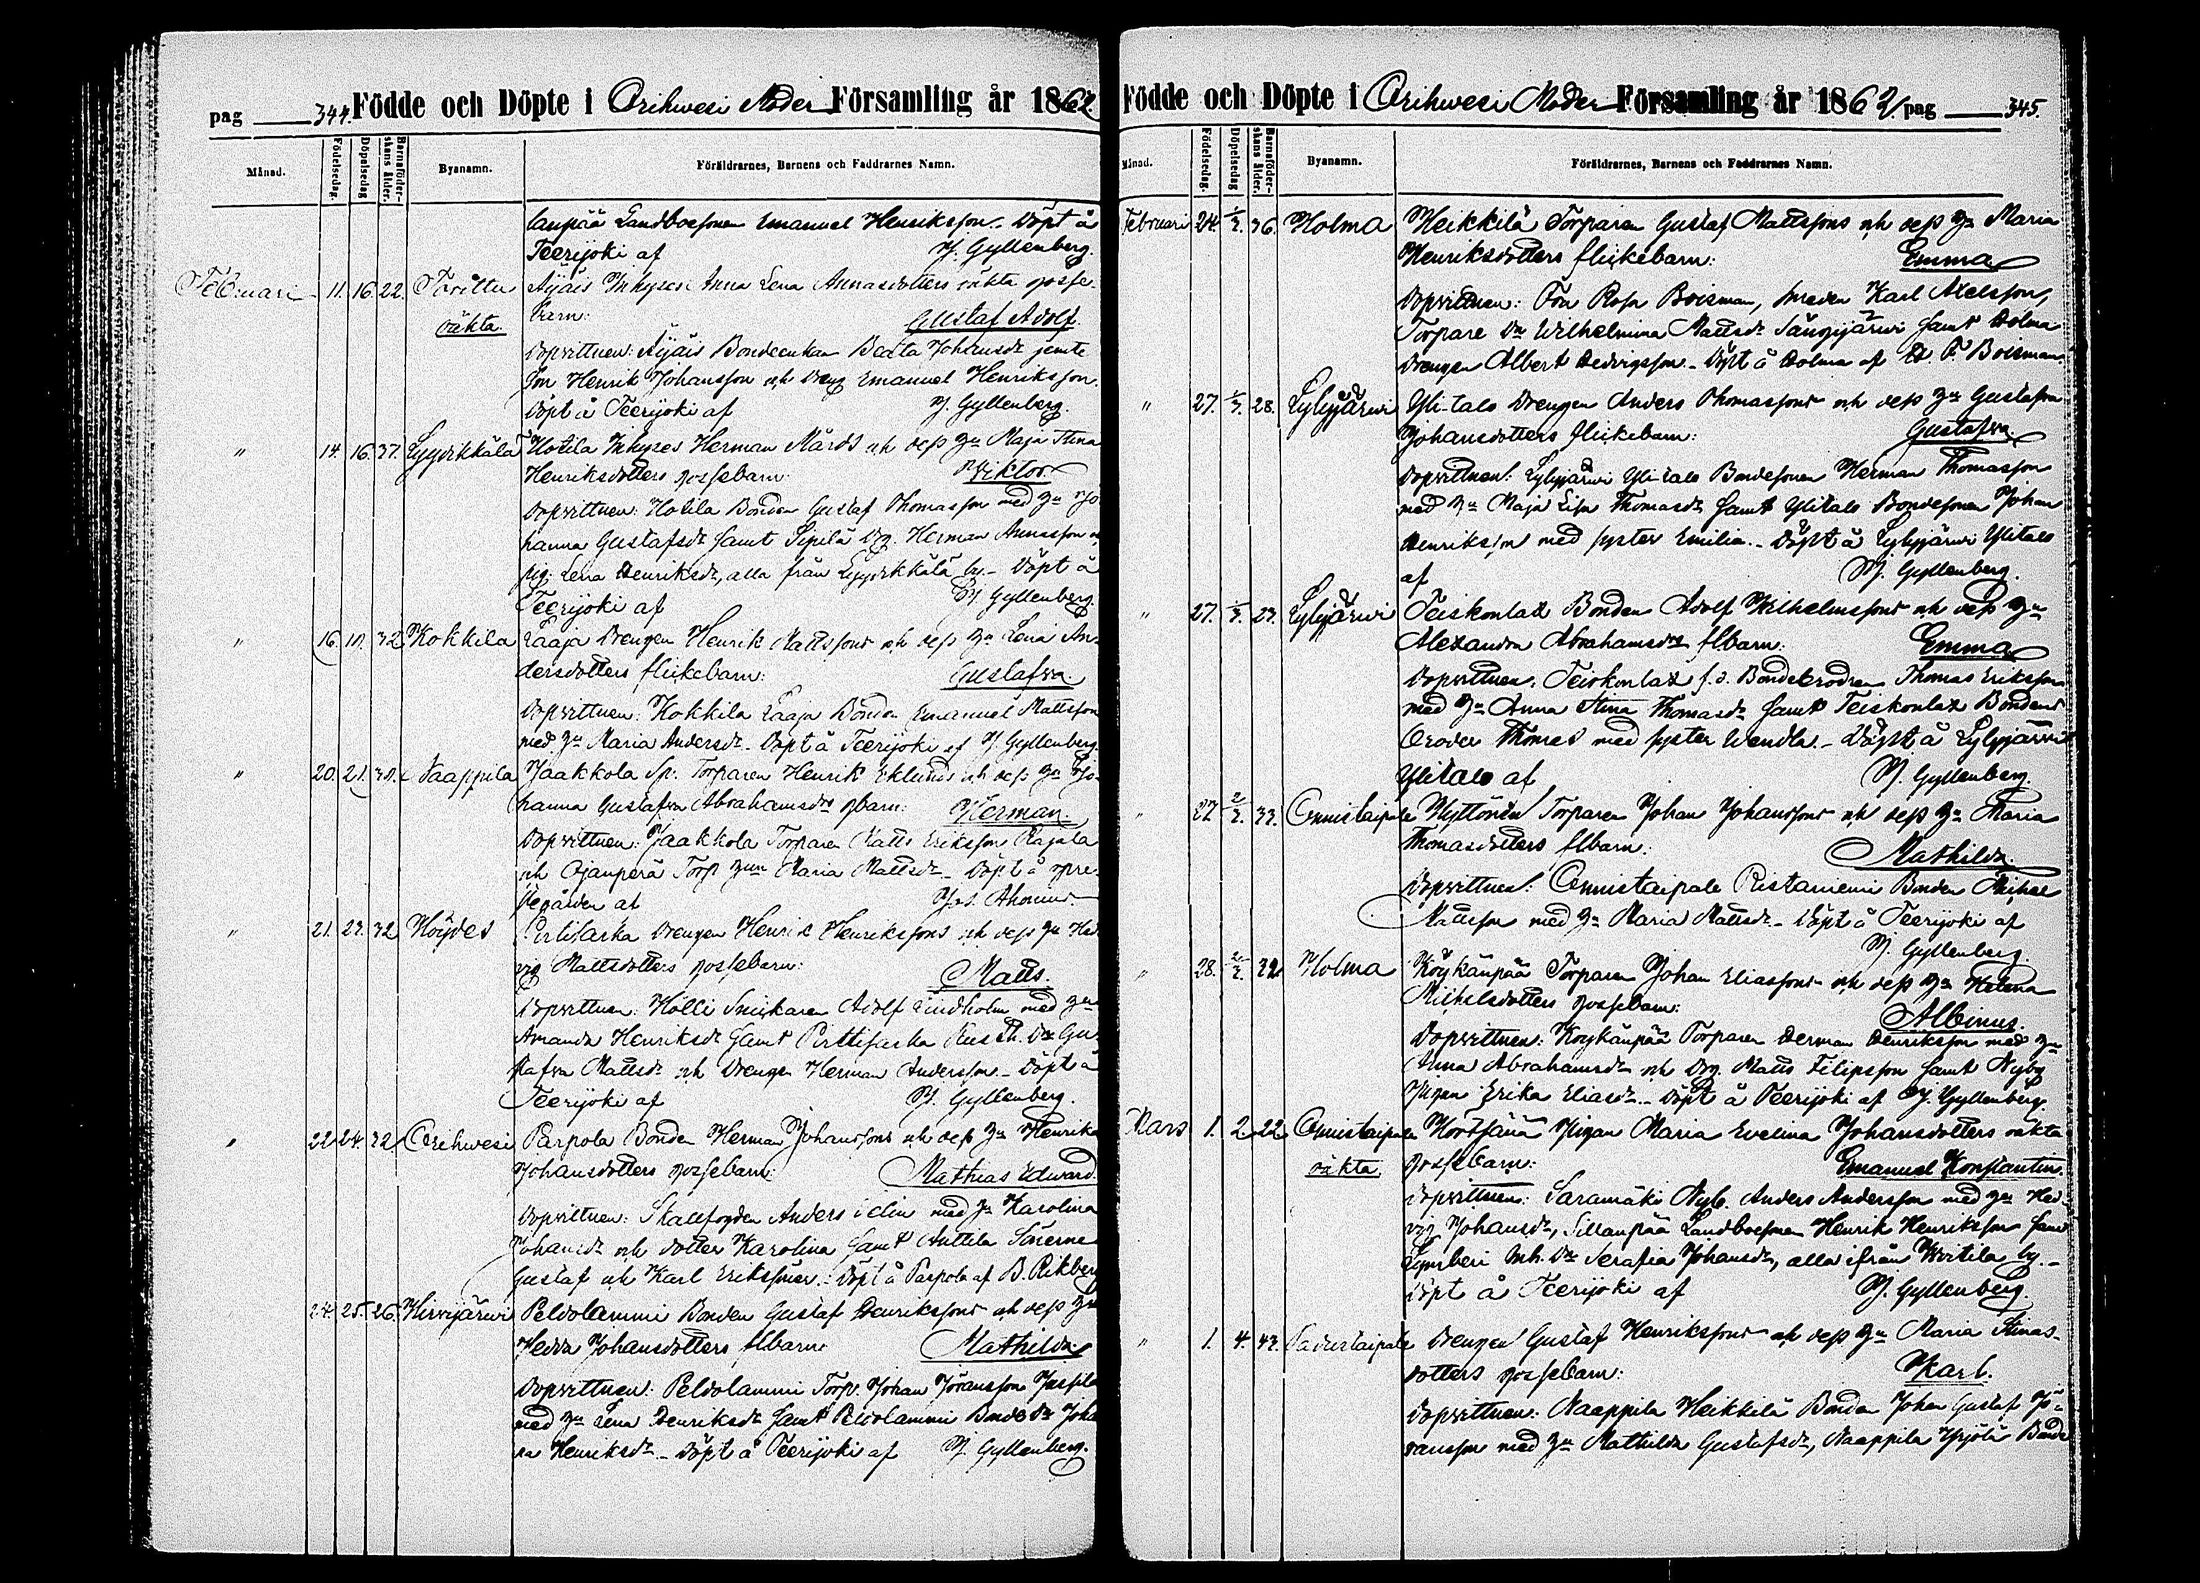 pag 344. Födde och Döpte i Orihwesi Moder Församling år 1862
Månad. Födelsedag. Döpelsedag Barnaföderskans ålder. Byanamn. Föräldrarnes, Barnens och Faddrarnes Namn.
Landboesonen Emanuel Henriksson. Döpt å
Teerijoki af M. Gyllenberg.
Februari 11. 16. 22. Äijäis Inhyses Anna Lena Annasdotters oäkta gosse-
oäkta barn: Gustaf Adolf.
Dopvittnen: Äijäis Bondeenkan Beata Johansdr jemte
son Henrik Johansson och Dreng Emanuel Henriksson.
Döpt å Teerijoki af M. Gyllenberg.
" 14. 16. 37. Lyydikkälä Hotila Inhyses Herman Mårds och dess Hu Maja Stina
Henriksdotters gossebarn: Viktor
Dopvittnen: Hotila Bonden Gustaf Thomasson med Hu Jo
hanna Gustafsdr samt Sipilä Drg. Herman Annasson o
pig. Lena Henriksdr, alla från Lyydikkälä by. Döpt å
Teerijoki af M. Gyllenberg.
" 16. 32 Kokkila Laaja Drengen Henrik Mattssons och dess Hu Lena An-
dersdotters flickebarn: Gustafva.
Dopvittnen: Kokkila Laaja Bonden Emanuel Mattsson
med Hu Maria Andersdr. Döpt å Teerijoki af M. Gyllenberg.
" 20. 21. Naappila Jaakkola Sp. Torparen Henrik Eklunds och dess Hu Jo-
hanna Gustafva Abrahamsdrs gbarn: Herman.
Dopvittnen: Jaakkola Torparen Matts Eriksson Rajala
och Ojanperä Torp Hun Maria Mattsdr. Döpt å Pre-
stegården af Jos. Ahonius
" 21. 23. 32 Höydes Pirttisarka Drengen Henrik Henrikssons och dess Hu Hed
vig Mattsdotters gossebarn: Matts.
Dopvittnen: Hölli Snickaren Adolf Lindholm med Hu
Amanda Henriksdr samt Pirttisarka Dr Gu
stafva Mattsdr och Drengen Herman Andersson. Döpt å
Teerijoki af M. Gyllenberg.
" 22 24. 32 Orihwesi Parpola Bonden Herman Johanssons och dess Hu Henrika
Johansdotters gossebarn: Mathias Edward.
Dopvittnen: Skallfogden Anders Edlin med Hu Karolina
Johansdr och dotter Karolina samt Anttila Sönerne
Gustaf och Karl Erikssöner. Döpt å Parpola af B. Rikberg
24. 25. 26. Hirvijärvi Peldolammi Bonden Gustaf Henrikssons och dess Hu
Hedda Johansdotters flbarn: Mathilda
Dopvittnen: Peldolammi Torp. Johan Jöransson
med Hu Lena Henriksdr samt Peldolammi Bonde Dr Joha
na Henriksdr. Döpt å Teerijoki af M. Gyllenberg.
Födde och Döpte i Orihwesi Moder Församling år 1862 pag 345.
Månad. Födelsedag. Döpelsedag Barnaföderskans ålder. Byanamn. Föräldrarnes, Barnens och Faddrarnes Namn.
Februari 24. 1/3. 36. Holma Heikkilä Torparen Gustaf Mattssons och dess Hu Maria
Henriksdotters flickebarn: Emma
Dopvittnen: Frn Rosa Boisman, smeden Karl Axelsson,
Torpare Dr Wilhelmina Mattsdr samt Holma
Drengen Albert Hedvigsson. Döpt å Holma af F Boisman.
" 27. 1/3. 28. Lylyjärvi Yli-talo Drengen Anders Thomassons och dess Hu Gustafva
Johansdotters flickebarn: Gustafva.
Dopvittnen: Lylyjärvi Yli-talo Bondesonen Herman Thomasson
med Hu Maja Lisa Thomasdr samt Ylitalo Bondesonen Johan
Henriksson med syster Emilia. Döpt å Lylyjärvi Ylitalo
af M. Gyllenberg.
" 27. 1/3. 23. Lylyjärvi Teiskonlax Bonden Adolf Wilhelmssons och dess Hu
Alexandra Abrahamsdrs flbarn: Emma
Dopvittnen: Teiskonlax f.d. Bondebrodren Thomas Eriksson
med Hu Anna Stina Thomasdr samt Teiskonlax Bondens
broder Thomas med syster Wendla. Döpt å Lylyjärvi
Ylitalo af M. Gyllenberg.
" 27 2/3. 33. Onnistaipale Torparen Johan Johanssons och dess Hu Maria
Thomasdotters flbarn: Mathilda.
Dopvittnen: Onnistaipale Ristaniemi Bonden Michel
Mattsson med Hu Maria Mattsdr. Döpt å Teerijoki af
M. Gyllenberg.
" 28. 2/3. 32 Holma Köykänpää Torparen Johan Eliassons och dess Hu Helena
Michelsdotters gossebarn: Albinus.
Dopvittnen: Köykänpää Torparen Herman Henriksson med Hu
Anna Abrahamsdr och Drg. Matts Filipsson samt Nyby
Pigan Erika Eliasdr. Döpt å Teerijoki af M. Gyllenberg.
Mars 1. 2 22 Onnistaipale Pigan Maria Evelina Johansdotters oäkta
oäkta. gossebarn: Emanuel Konstantin.
Dopvittnen: Saramäki Nyb. Anders Andersson med Hu Hed-
vig Johansdr, Sillanpää Landboesonen Henrik Henriksson samt
Inh. Dr Serafia Johansdr, alla ifrån by.
Döpt å Teerijoki af M. Gyllenberg.
" 1. 4. 43. Padustaipale Drengen Gustaf Henrikssons och dess Hu Maria Stinas-
dotters gossebarn: Karl.
Dopvittnen: Naappila Heikkilä Bonden Johan Gustaf Jö-
ransson med Hu Mathilda Gustafsdr, Naappila Yrjölä Bonde